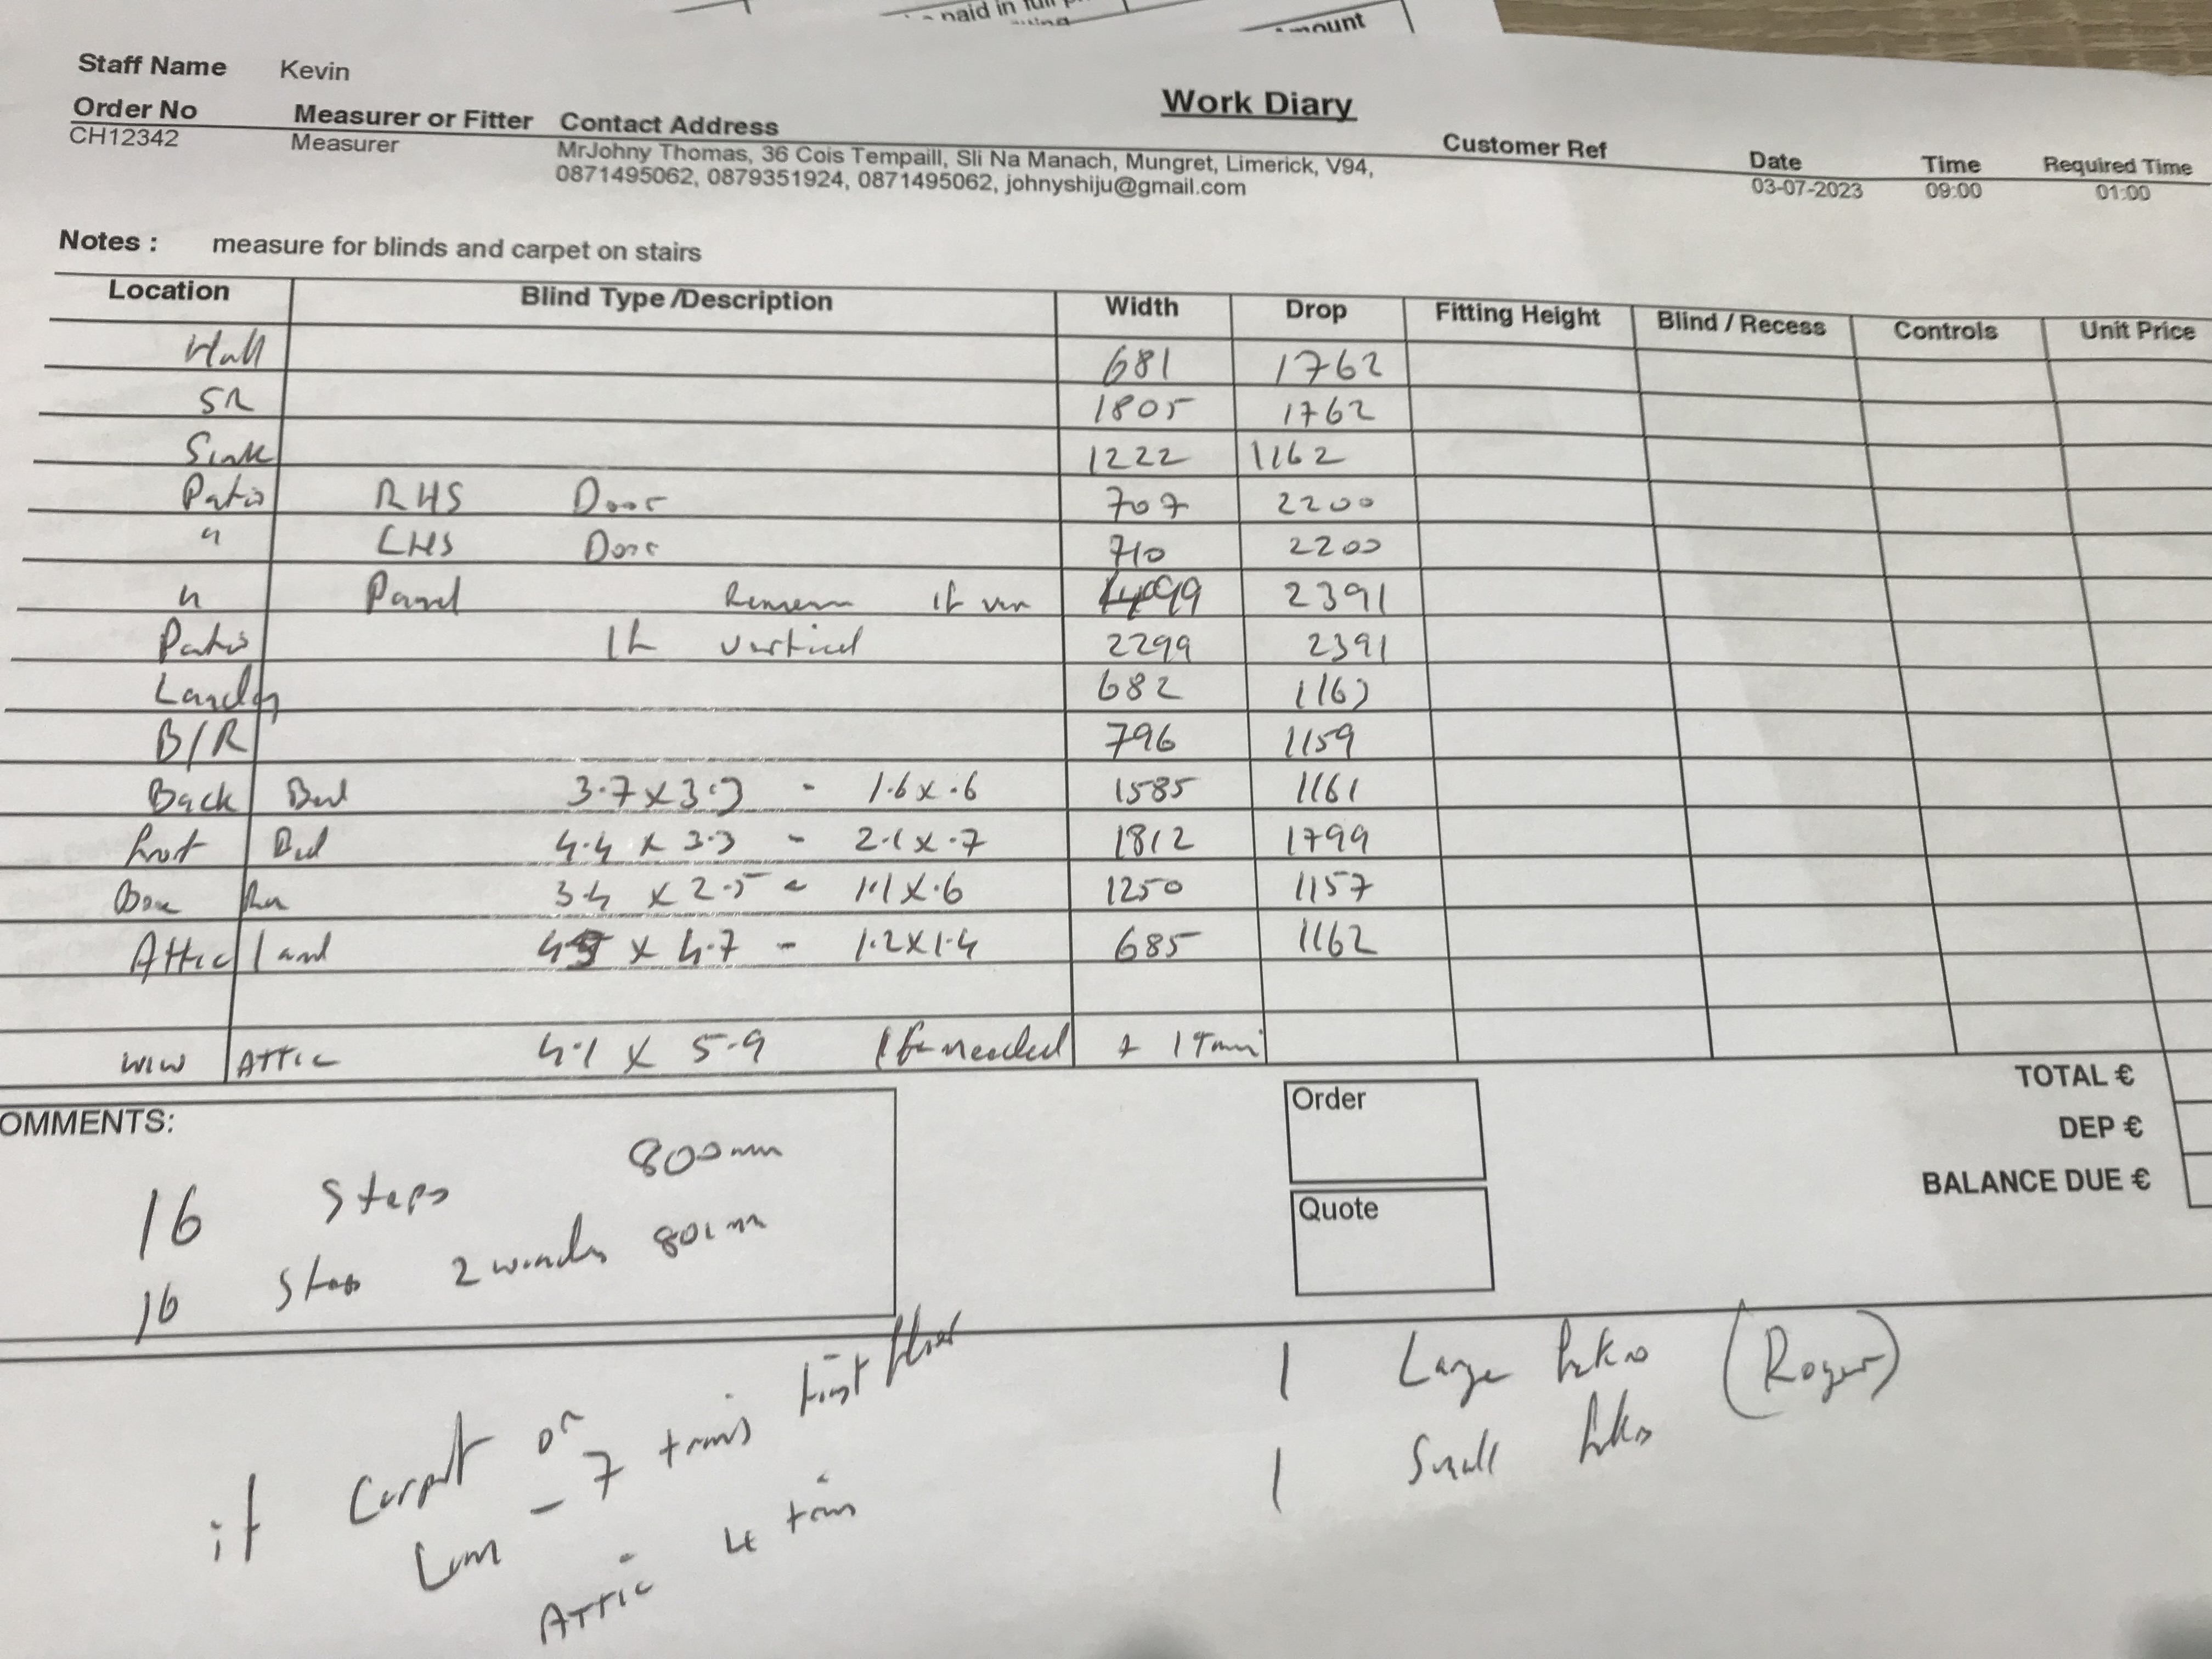 paid in full
mount
Staff Name Kevin
Work Diary
Order No Measurer or Fitter Contact Address Customer Ref Date Time Required Time
CH12342 Measurer MrJohny Thomas, 36 Cois Tempaill, Sli Na Manach, Mungret, Limerick, V94, 03-07-2023 09:00 01:00
0871495062, 0879351924, 0871495062, johnyshiju@gmail.com
Notes : measure for blinds and carpet on stairs
Location Blind Type /Description Width Drop Fitting Height Blind / Recess Controls Unit Price
Hall 681 1762
SR 1805 1762
Sink 1222 1162
Patio RHS Door 707 2200
" LHS Door 710 2200
" Panel if 2391
Patio If vertical 2299 2391
Landing 682 1163
B/R 796 1159
Back Bed 3.7 x 3.3 - 1.6 x .6 1585 1161
Front Bed 4.4 x 3.3 - 2.1 x .7 1812 1799
Box Rm 3.4 x 2.5 - 1.1 x .6 1250 1157
Attic Land x 4.7 - 1.2 x 1.4 685 1162
WIW ATTIC 4.1 x 5.9 If needed + 1 Trim
TOTAL €
DEP €
BALANCE DUE €
OMMENTS:
16 Steps 800mm
16 Steps 2 801mm
Order
Quote
if Carpet or
Lam - 7 trims first floor
ATTIC 4 trims
1 Large (Roger)
1 Small